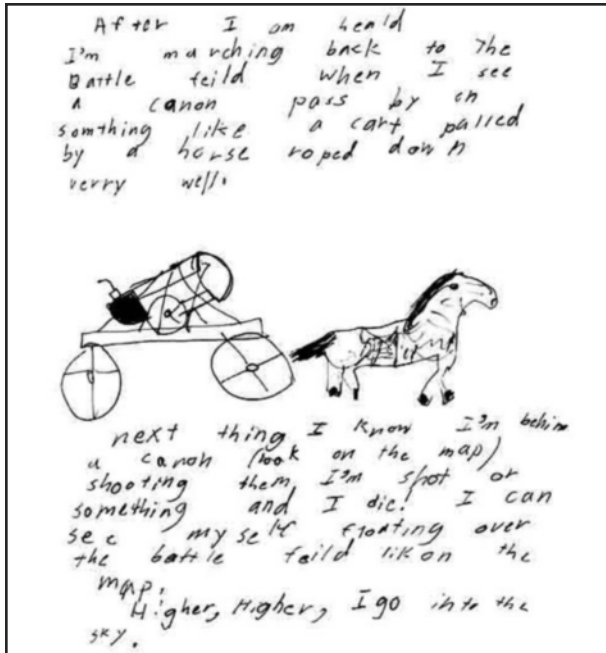 After I am heald
I'm marching back to The
Battle feild when I see
a canon pass by on
somthing like a cart palled
by a horse roped down
verry well.
next thing I know I'm behin
a canon (look on the map)
shooting them, I'm shot or
something and I die! I can
see my self floating over
the battle feild lik on the
map.
Higher, Higher, I go into the
sky.